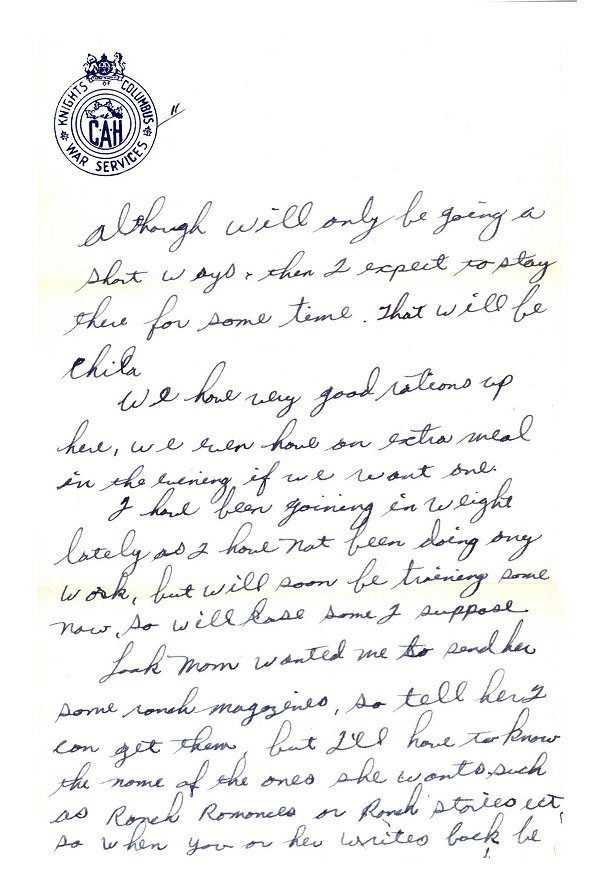 KNIGHTS OF COLUMBUS
CAH
WAR SERVICES
"
although will only be going a
short ways & then I expect to stay
there for some time. That will be
Chila
We have very good rations up
here, we even have an extra meal
in the evening if we want one.
I have been gaining in weight
lately as I have not been doing any
work, but will soon be training some
now, so will lose some I suppose
Look Mom wanted me to send her
some ranch magazines, so tell her I
can get them, but I'll have to know
the name of the ones she wants, such
as Ranch Romances or Ranch stories ect,
so when you or her writes back be